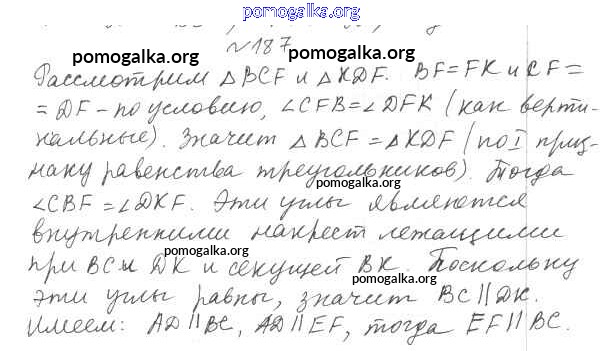 pomogalka.org
№187
pomogalka.org pomogalka.org
Рассмотрим △BCF и △KDF. BF=FK и CF=
= DF - по условию, ∠CFB=∠DFK (как верти-
pomogalka.org
кальные). Значит △BCF = △KDF (по I приз-
наку равенства треугольников). Тогда
pomogalka.org
∠CBF = ∠DKF. Эти углы являются
внутренними накрест лежащими
pomogalka.org
при BC и DK и секущей BK. Поскольку
pomogalka.org
эти углы равны, значит BC || DK.
Имеем: AD || BC, AD || EF, тогда EF || BC.